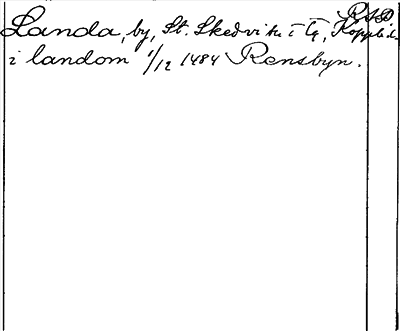 R.S.D.
Landa, by, St. Skedvi sn i
i landom 1/12 1484 Rensbyn.